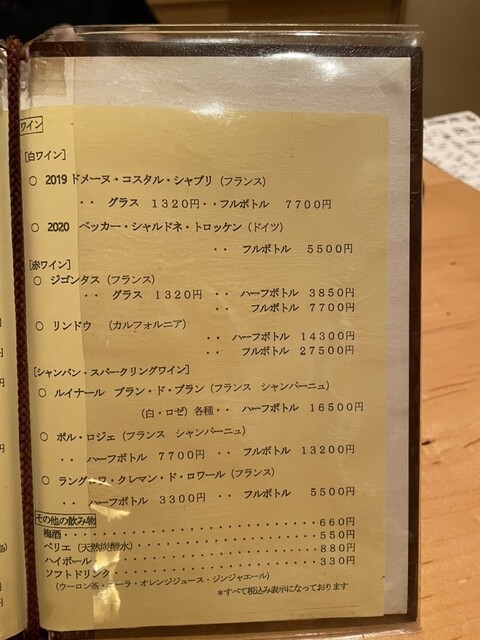 ワイン
[白ワイン]
○ 2019 ドメーヌ・コスタル・シャブリ (フランス)
・・ グラス 1320円・・フルボトル 7700円
○ 2020 ベッカー・シャルドネ・トロッケン (ドイツ)
・・ フルボトル 5500円
[赤ワイン]
○ ジゴンダス (フランス)
・・ グラス 1320円 ・・ ハーフボトル 3850円
・・ フルボトル 7700円
○ リンドウ (カルフォルニア)
・・ ハーフボトル 14300円
・・ フルボトル 27500円
[シャンパン・スパークリングワイン]
○ ルイナール ブラン・ド・ブラン (フランス シャンパーニュ)
(白・ロゼ) 各種・・ ハーフボトル 16500円
○ ポル・ロジェ (フランス シャンパーニュ)
・・ ハーフボトル 7700円 ・・ フルボトル 13200円
○ ラングロワ・クレマン・ド・ロワール (フランス)
・・ ハーフボトル 3300円 ・・ フルボトル 5500円
その他の飲み物
梅酒・・・・・・・・・・・・・・・・・・・・・・660円
ペリエ (天然炭酸水)・・・・・・・・・・・・・・・550円
ハイボール・・・・・・・・・・・・・・・・・・・880円
ソフトドリンク・・・・・・・・・・・・・・・・・330円
(ウーロン茶・コーラ・オレンジジュース・ジンジャエール)
*すべて税込み表示になっております